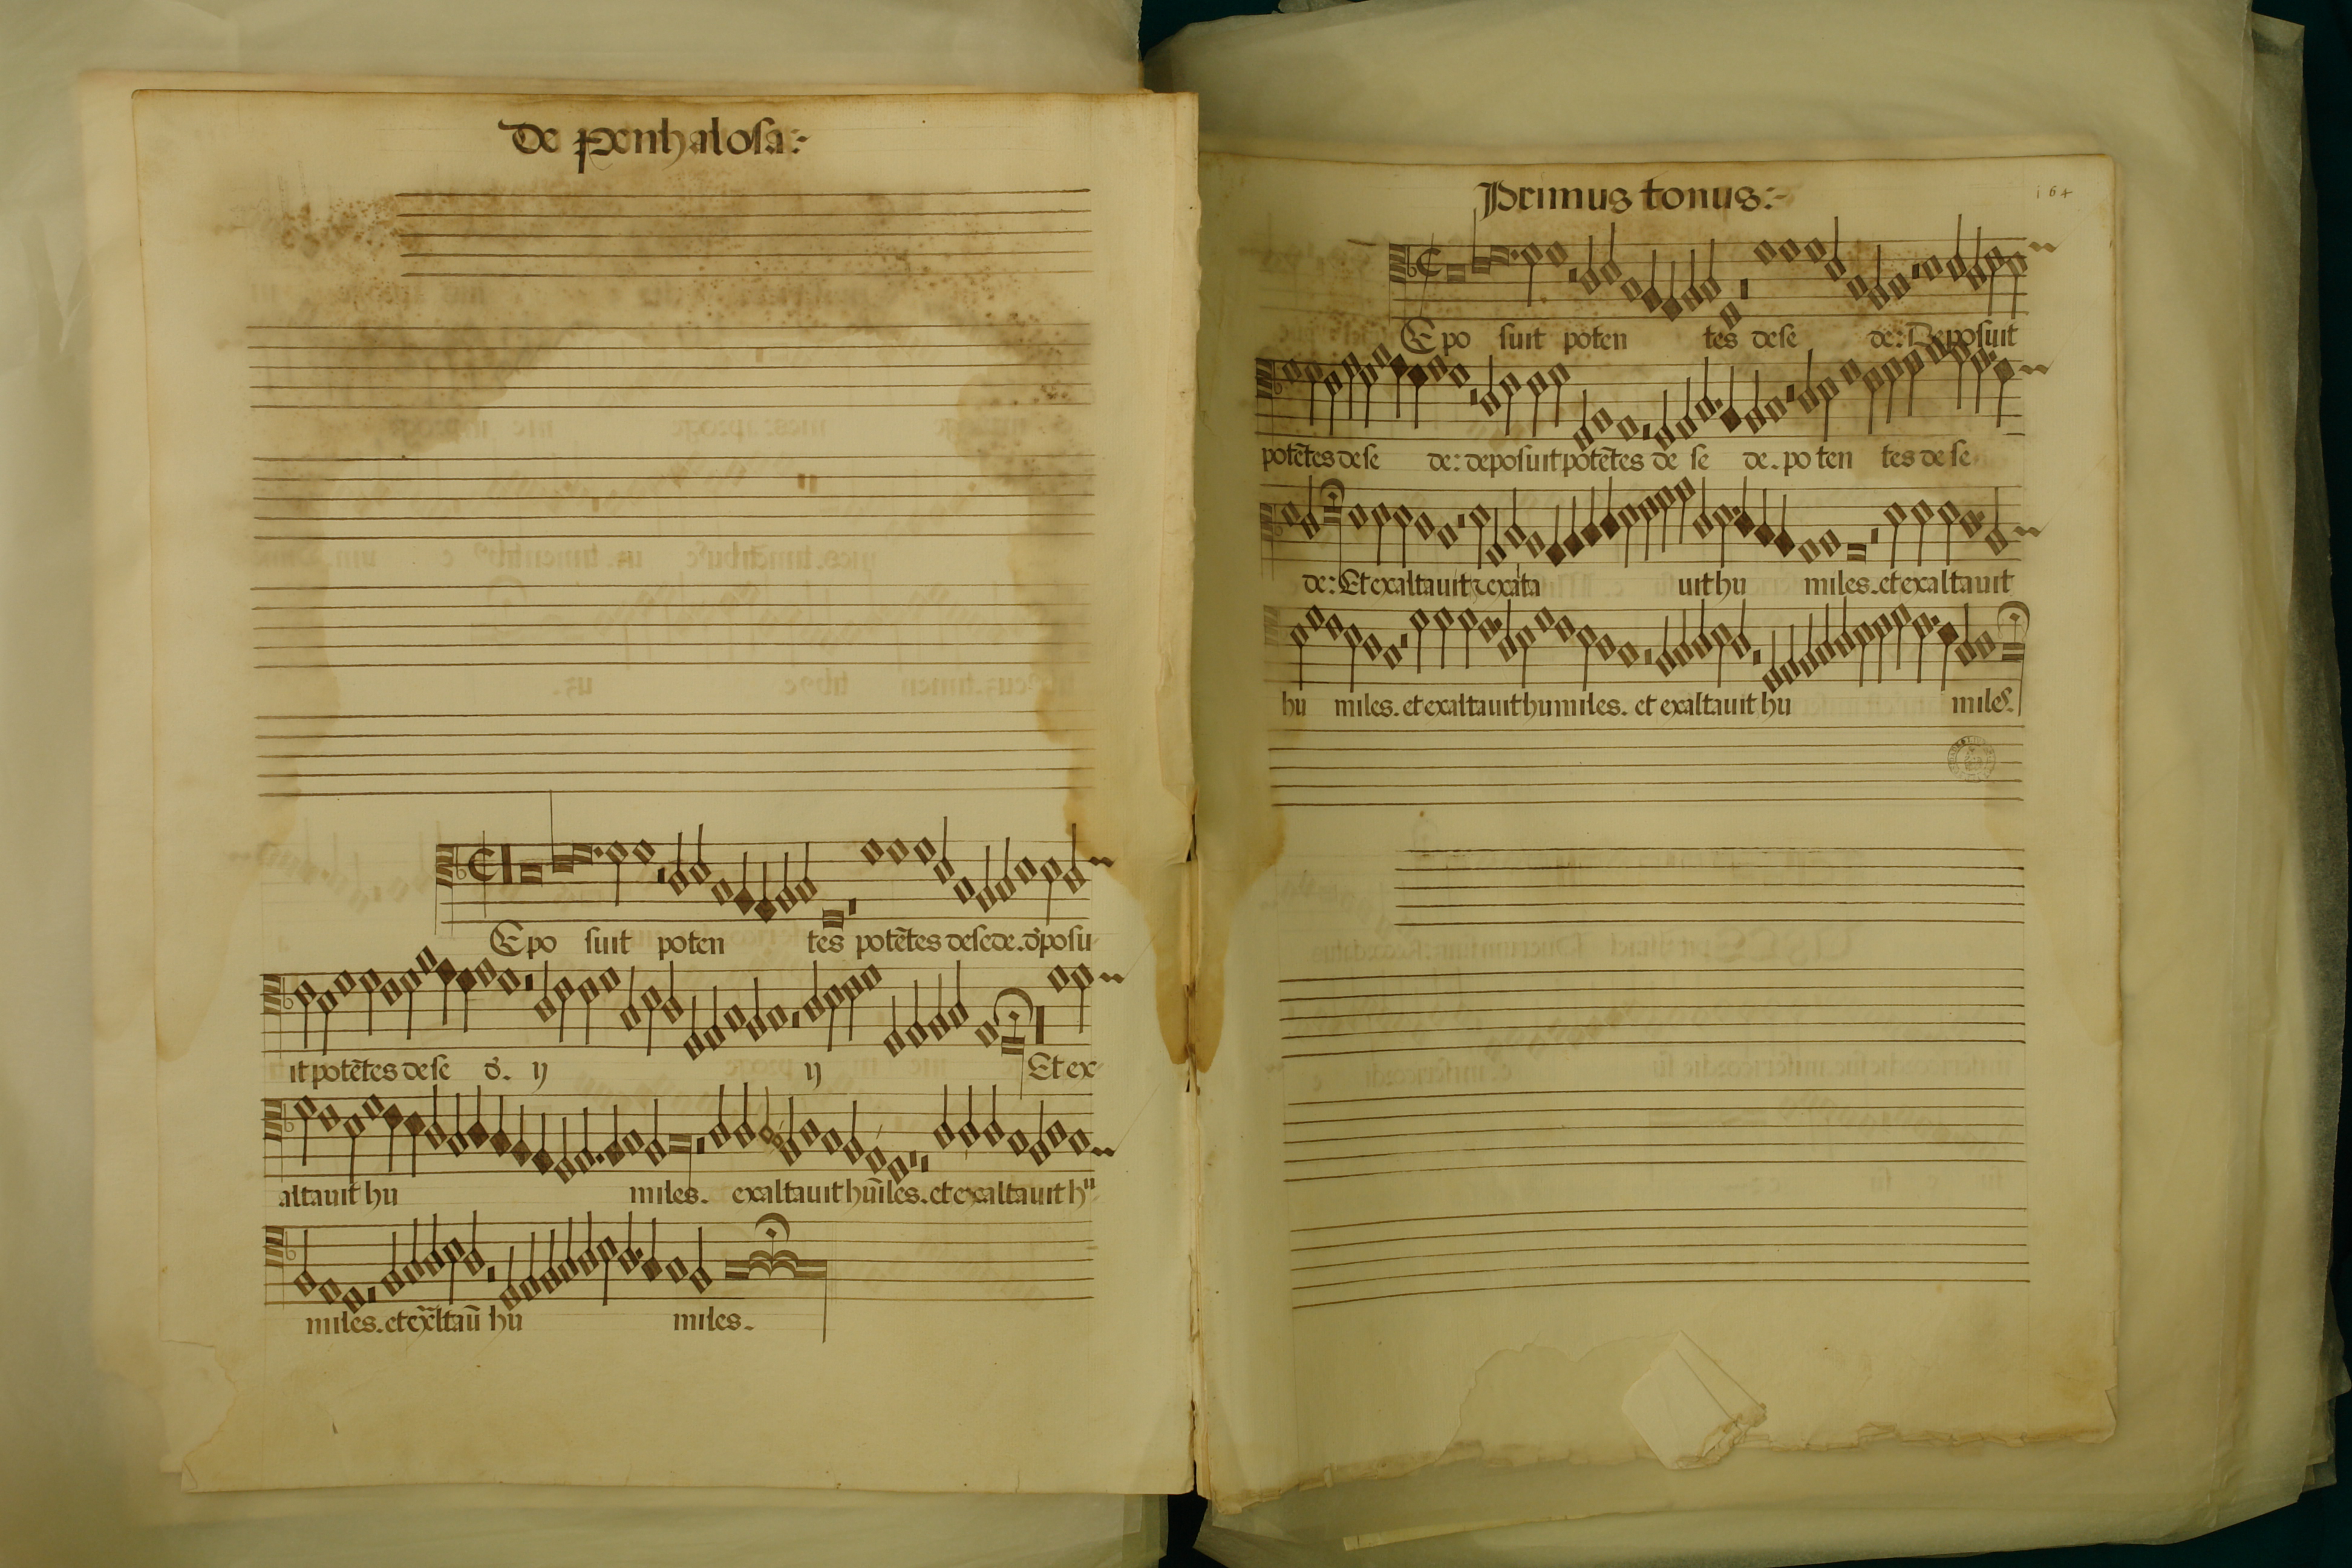 De penhalosa:
Epo suit poten tes potẽtes desede. dposu
it potẽtes dese d. ij ij Et ex
altauit hu miles. exaltauit hũiles. et exaltauit hu
miles. et exãltaũ hu miles.
Primus tonus:
164
Epo suit poten tes dese de: Deposuit
potẽtes dese de: deposuit potẽtes de se de. po ten tes de se
de: Et exaltauit ⁊ exalta uit hu miles. et exaltauit
hu miles. et exaltauit humiles. et exaltauit hu miles.